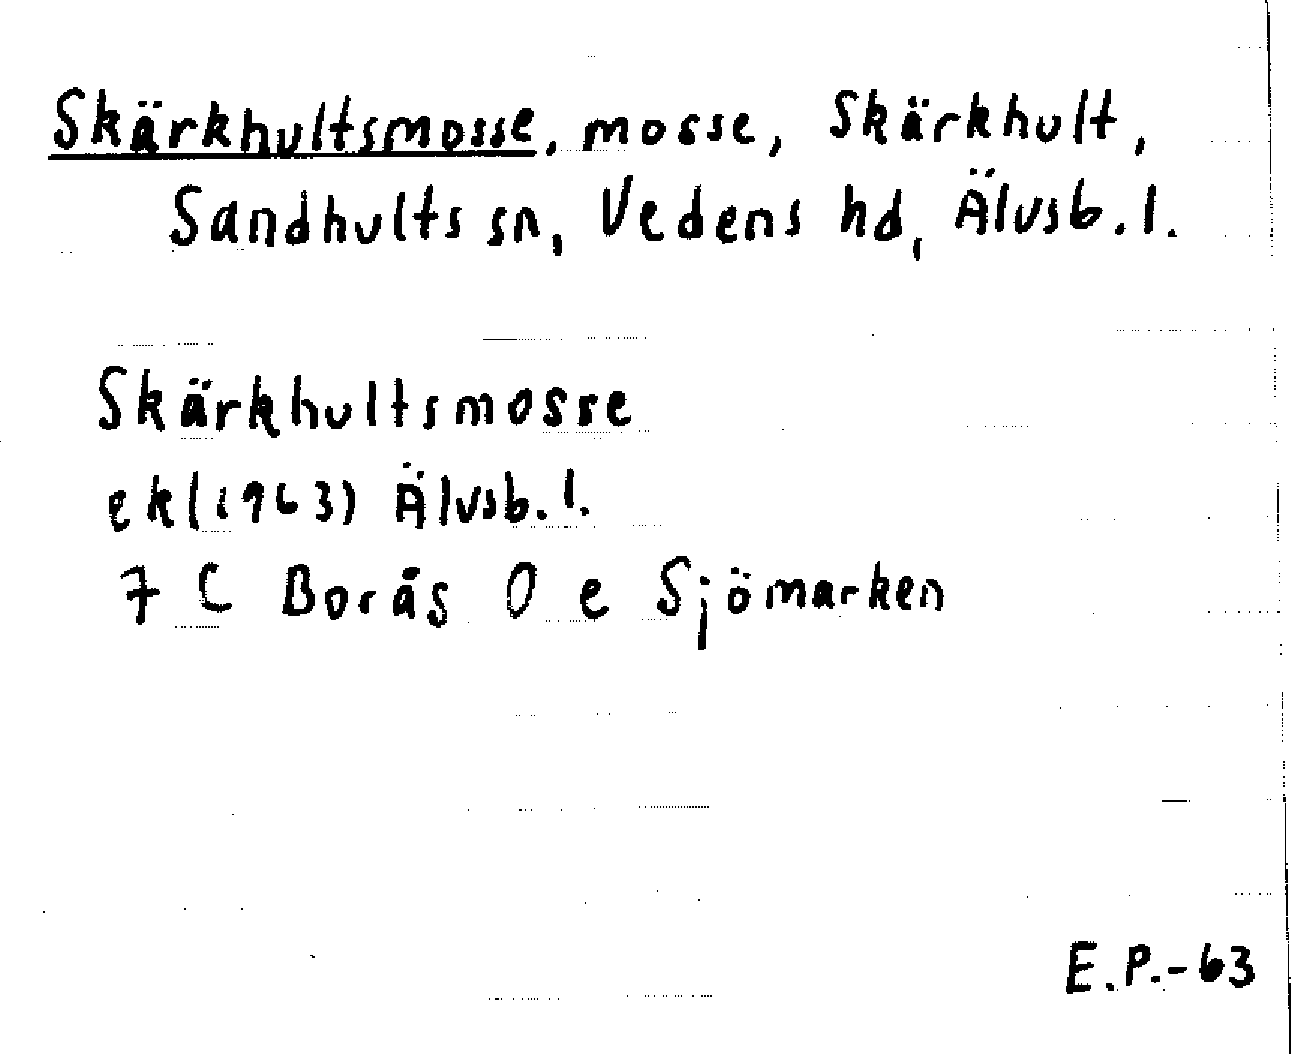 Skärkhultsmosse, mosse, Skärkhult,
Sandhults sn, Vedens hd, Älvsb. l.
Skärkhultsmosse
ek(1963) Älvsb. l.
7 C Borås O e Sjömarken
E.P.-63